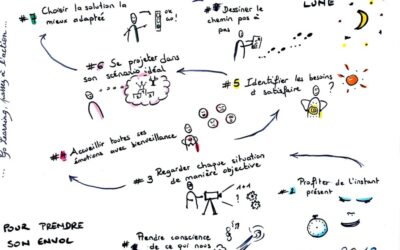 #7 Choisir la solution la
mieux adaptée
OK
GO!
#8 Dessiner le
chemin pas à
pas
LUNE
#6 Se projeter dans
son scénario idéal
#5 Identifier les besoins
à satisfaire
?
#4 Accueillir toutes ses
émotions avec bienveillance
#3 Regarder chaque situation
de manière objective
1++
#1 Profiter de l'instant
présent
Prendre conscience
de ce qui nous
POUR PRENDRE
SON ENVOL
... Go learning, passez à l'action...